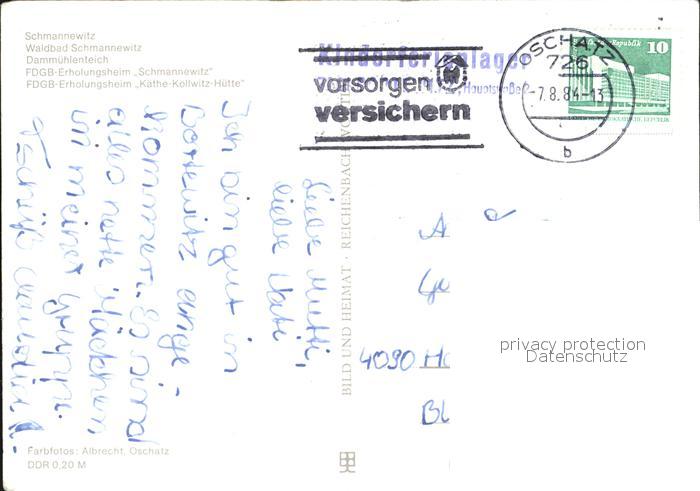 Schmannewitz
Waldbad Schmannewitz
Dammühlenteich
FDGB-Erholungsheim „Schmannewitz"
FDGB-Erholungsheim „Käthe-Kollwitz-Hütte"
Kinderferienlager
Hauptstraße
vorsorgen
versichern
OSCHATZ
726
-7.8.84-13
b
10
Liebe Mutti,
liebe Vati
Ich bin gut in
Bortewitz ange-
kommen. Es sind
alles nette Mädchen
in meiner Gruppe.
BILD UND HEIMAT · REICHENBACH
A
4090 H
Bl
privacy protection
Datenschutz
Farbfotos: Albrecht, Oschatz
DDR 0,20 M